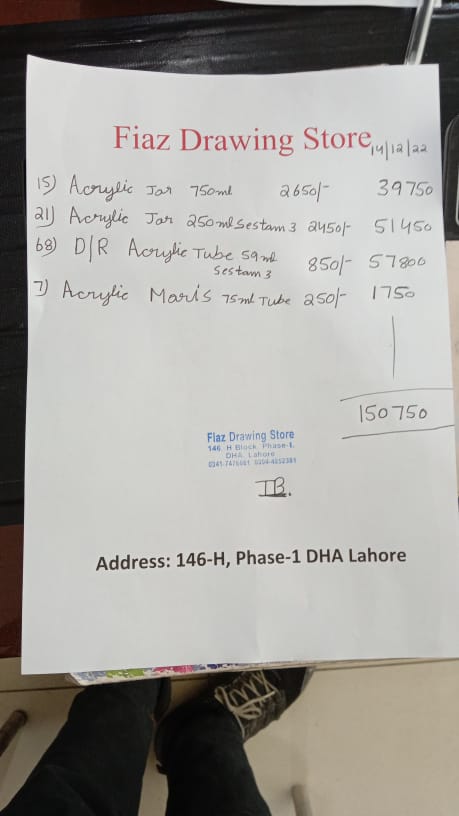 Fiaz Drawing Store
14/12/22
15) Acrylic Jar 750ml 2650/- 39750
21) Acrylic Jar 250ml Sestam 3 2450/- 51450
68) D/R Acrylic Tube 59ml 850/- 57800
Sestam 3
7) Acrylic Maris 75ml Tube 250/- 1750
150750
Fiaz Drawing Store
146 H Block Phase-1,
DHA Lahore
IB.
Address: 146-H, Phase-1 DHA Lahore